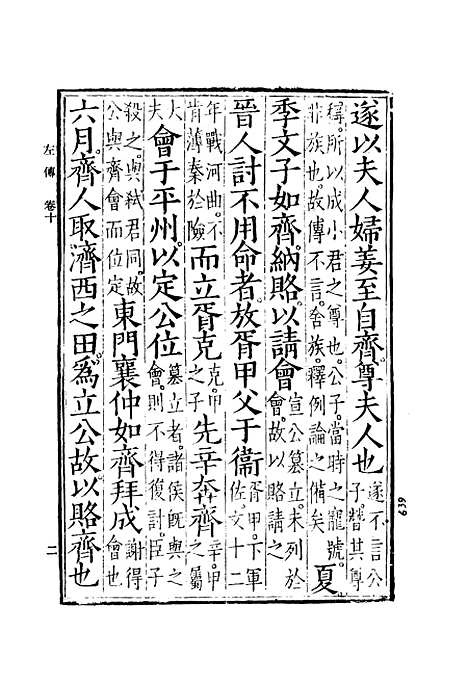 遂以夫人婦姜至自齊。尊夫人也遂不言公子替其尊
稱。所以成小君之尊也。公子。當時之寵號。非族也。故傳不言舍族。釋例論之備矣夏
季文子如齊。納賂以請會宣公簒立。未列於會。故以賂請之
晉人討不用命者。放胥甲父于衞胥甲。下軍佐。文十二
年戰河曲。不肯薄秦於險而立胥克克。甲之子先辛奔齊辛。甲之屬
大夫會于平州。以定公位簒立者。諸侯既與之會。則不得復討。臣子
殺之。與弑君同。故公與齊會而位定東門襄仲如齊拜成謝得會也
六月。齊人取濟西之田。爲立公故。以賂齊也
左傳 卷十
二
639